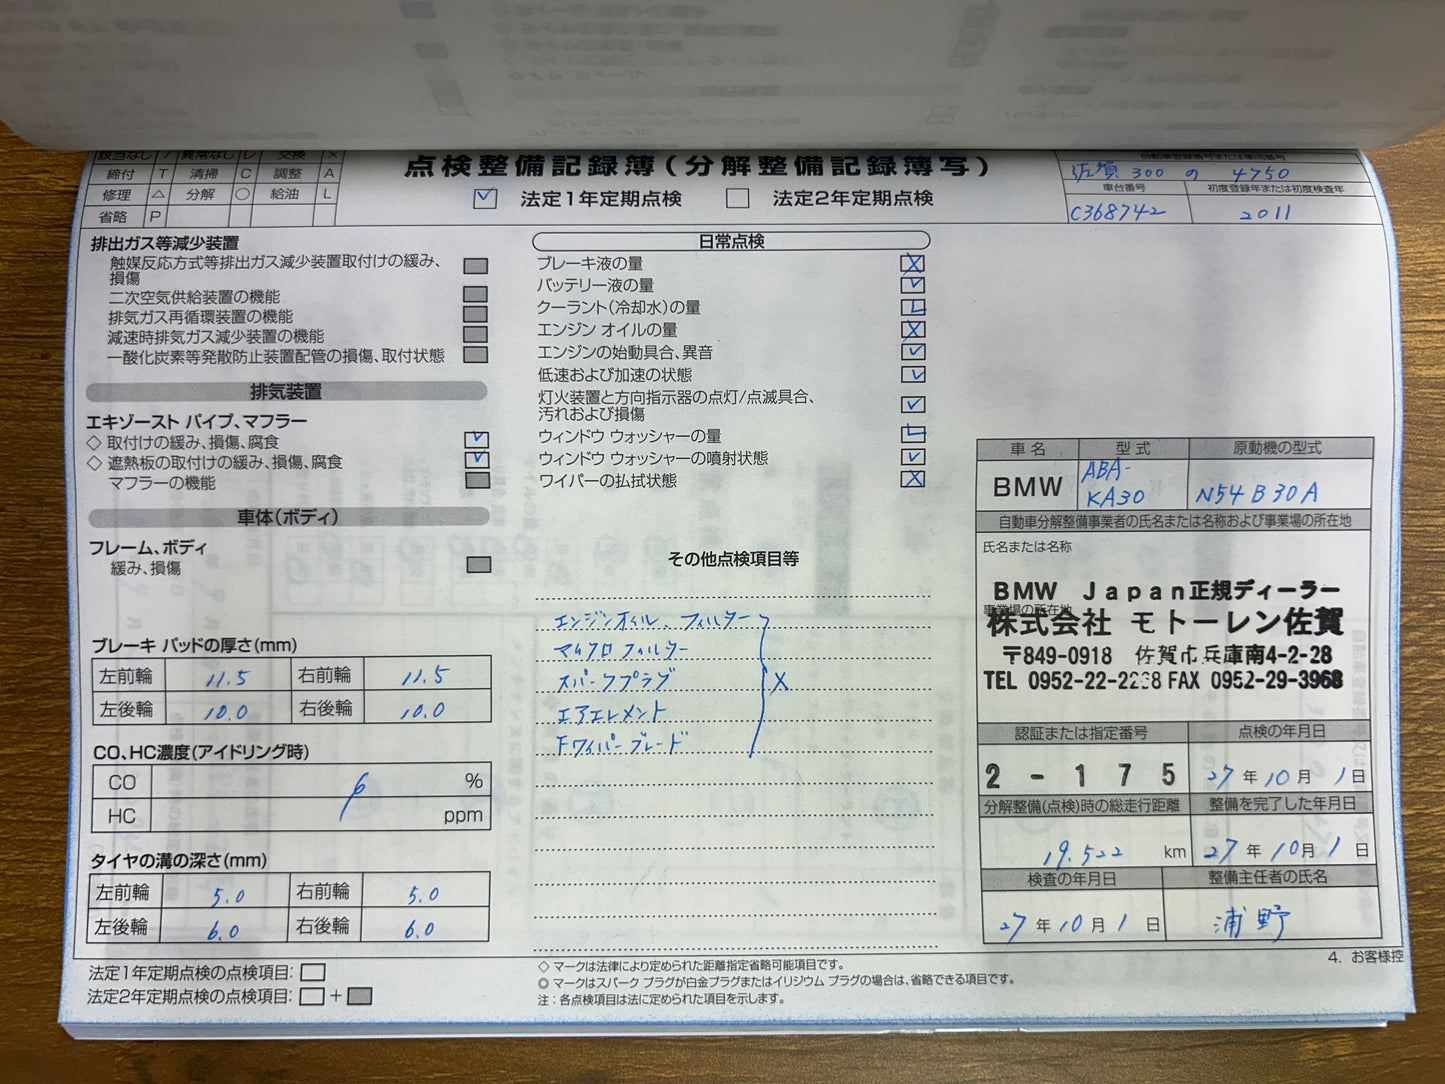 該当なし / 異常なし レ 交換 ×
締付 T 清掃 C 調整 A
修理 △ 分解 ○ 給油 L
省略 P
点検整備記録簿(分解整備記録簿写)
☑ 法定1年定期点検 □ 法定2年定期点検
自動車登録番号または車両番号
佐賀 300 の 4750
車台番号 初度登録年または初度検査年
C368742 2011
排出ガス等減少装置
触媒反応方式等排出ガス減少装置取付けの緩み、
損傷
二次空気供給装置の機能
排気ガス再循環装置の機能
減速時排気ガス減少装置の機能
一酸化炭素等発散防止装置配管の損傷、取付状態
排気装置
エキゾースト パイプ、マフラー
◇ 取付けの緩み、損傷、腐食 レ
◇ 遮熱板の取付けの緩み、損傷、腐食 レ
マフラーの機能
車体(ボディ)
フレーム、ボディ
緩み、損傷
ブレーキ パッドの厚さ(mm)
左前輪 11.5 右前輪 11.5
左後輪 10.0 右後輪 10.0
CO、HC濃度(アイドリング時)
CO %
HC ppm
タイヤの溝の深さ(mm)
左前輪 5.0 右前輪 5.0
左後輪 6.0 右後輪 6.0
法定1年定期点検の点検項目: □
法定2年定期点検の点検項目: □ + ■
日常点検
ブレーキ液の量 ×
バッテリー液の量 レ
クーラント(冷却水)の量 L
エンジン オイルの量 ×
エンジンの始動具合、異音 レ
低速および加速の状態 レ
灯火装置と方向指示器の点灯/点滅具合、
汚れおよび損傷 レ
ウィンドウ ウォッシャーの量 L
ウィンドウ ウォッシャーの噴射状態 レ
ワイパーの払拭状態 ×
その他点検項目等
エンジンオイル、フィルター
マイクロフィルター
スパークプラグ ×
エアエレメント
Fワイパーブレード
◇ マークは法律により定められた距離指定省略可能項目です。
◎ マークはスパーク プラグが白金プラグまたはイリジウム プラグの場合は、省略できる項目です。
注:各点検項目は法に定められた項目を示します。
車名 型式 原動機の型式
BMW ABA-
KA30 N54B30A
自動車分解整備事業者の氏名または名称および事業場の所在地
氏名または名称
BMW Japan正規ディーラー
事業場の所在地
株式会社 モトーレン佐賀
〒849-0918 佐賀市兵庫南4-2-28
TEL 0952-22-2268 FAX 0952-29-3968
認証または指定番号 点検の年月日
2-175 27年10月1日
分解整備(点検)時の総走行距離 整備を完了した年月日
19,522 km 27年10月1日
検査の年月日 整備主任者の氏名
27年10月1日 浦野
4. お客様控